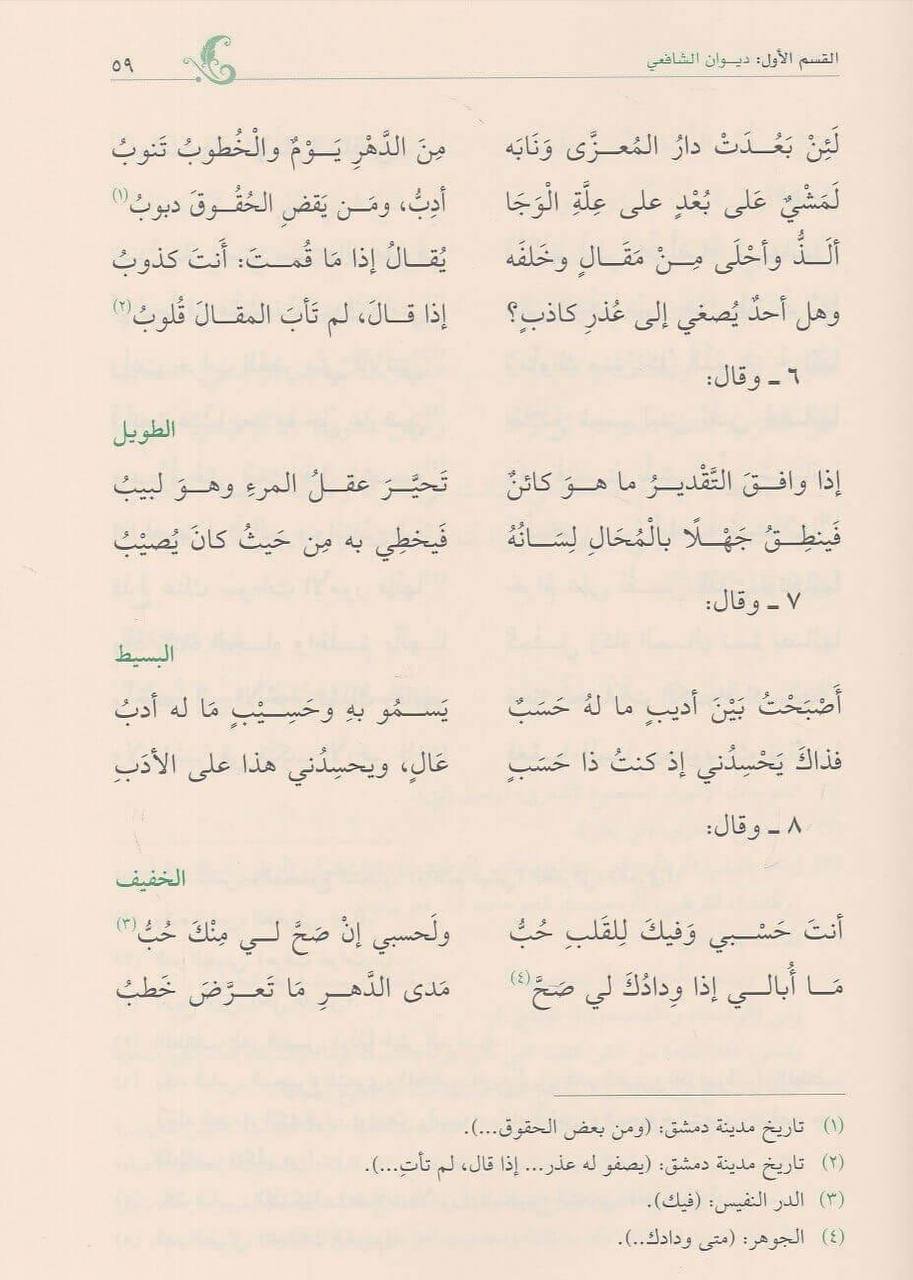 القسم الأول: ديـوان الشافعي ٥٩
لَئِنْ بَعُـدَتْ دارُ المُعـزَّى وَنَابَه مِنَ الدَّهْرِ يَـوْمٌ والْخُطوبُ تَنوبُ
لَمَشْيٌ عَلى بُعْدٍ على عِلَّةِ الْوَجَا أدِبُّ، ومَـن يَقضِ الحُقُـوقَ دبوبُ(١)
ألَـذُّ وأحْلَى مِـنْ مَقَـالٍ وخَلفَه يُقـالُ إذا مَا قُمـتَ: أَنتَ كذوبُ
وهل أحدٌ يُصغي إلى عُذرِ كاذبٍ؟ إذا قـالَ، لم تَأبَ المقـالَ قُلوبُ(٢)
٦ ـ وقال:
الطويل
إذا وافـقَ التَّقْديـرُ ما هـوَ كائنٌ تَحيَّـرَ عقـلُ المرءِ وهـوَ لبيبُ
فَينطِـقُ جَهْـلًا بالْمُحَالِ لِسَـانُهُ فَيخطِي به مِن حَيثُ كانَ يُصيْبُ
٧ ـ وقال:
البسيط
أَصْبَحْتُ بَيْنَ أديبٍ ما لهُ حَسَبٌ يَسـمُو بهِ وحَسِيْبٍ مَا له أدبُ
فذاكَ يَحْسِدُني إذ كنتُ ذا حَسَبٍ عَالٍ، ويحسِدُني هذا على الأدَبِ
٨ ـ وقال:
الخفيف
أنتَ حَسْـبي وَفيكَ لِلقَلبِ حُبُّ ولَحسبي إنْ صَحَّ لـي مِنْكَ حُبُّ(٣)
مَـا أُبالـي إذا وِدادُكَ لي صَحَّ(٤) مَدى الدَّهـرِ مَا تَعـرَّضَ خَطبُ
(١) تاريخ مدينة دمشق: (ومن بعض الحقوق...).
(٢) تاريخ مدينة دمشق: (يصفو له عذر... إذا قال، لم تأتِ...).
(٣) الدر النفيس: (فيك).
(٤) الجوهر: (متى ودادك..).